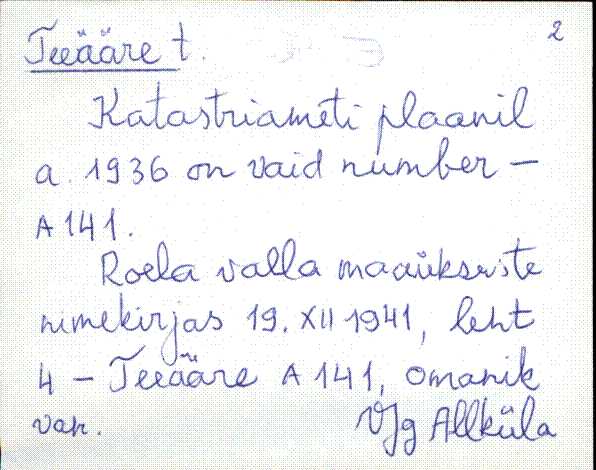 2
Teeääre t.
Katastriameti plaanil
a. 1936 on vaid number –
A 141.
Roela valla maaüksuste
nimekirjas 19. XII 1941, leht
4 – Teeääre A 141, omanik
van.
VJg Allküla